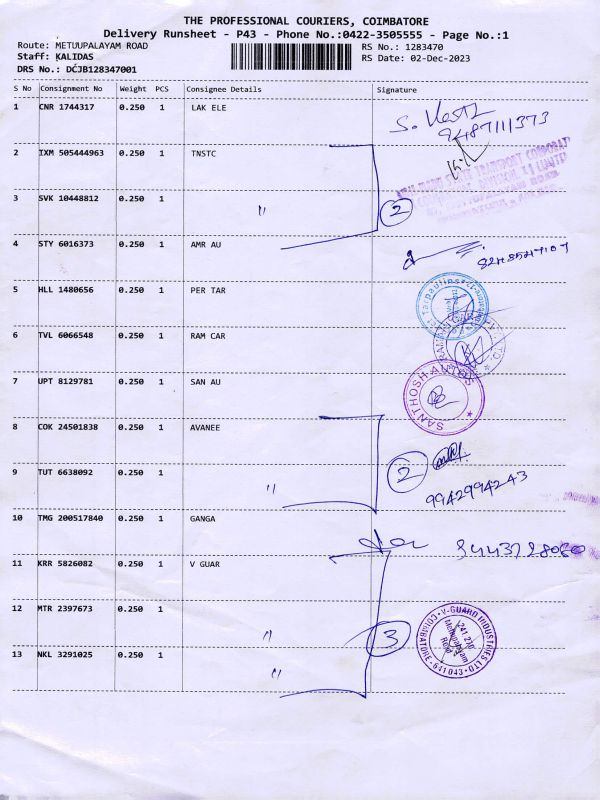 THE PROFESSIONAL COURIERS, COIMBATORE
Delivery Runsheet - P43 - Phone No.:0422-3505555 - Page No.:1
Route: METUUPALAYAM ROAD RS No.: 1283470
Staff: KALIDAS RS Date: 02-Dec-2023
DRS No.: DCJB128347001
S No Consignment No Weight PCS Consignee Details Signature
1 CNR 1744317 0.250 1 LAK ELE
9487111373
2 IXM 505444963 0.250 1 TNSTC
3 SVK 10448812 0.250 1 " 2
4 STY 6016373 0.250 1 AMR AU
5 HLL 1480656 0.250 1 PER TAR
6 TVL 6066548 0.250 1 RAM CAR
7 UPT 8129781 0.250 1 SAN AU
SANTHOSH AUTOS
8 COK 24501838 0.250 1 AVANEE
9 TUT 6638092 0.250 1 " 2
9942994243
10 TMG 200517840 0.250 1 GANGA
11 KRR 5826082 0.250 1 V GUAR
12 MTR 2397673 0.250 1 " 3
V-GUARD INDUSTRIES LTD
241 210
Mettupalayam
Road
COIMBATORE-641043
13 NKL 3291025 0.250 1 "